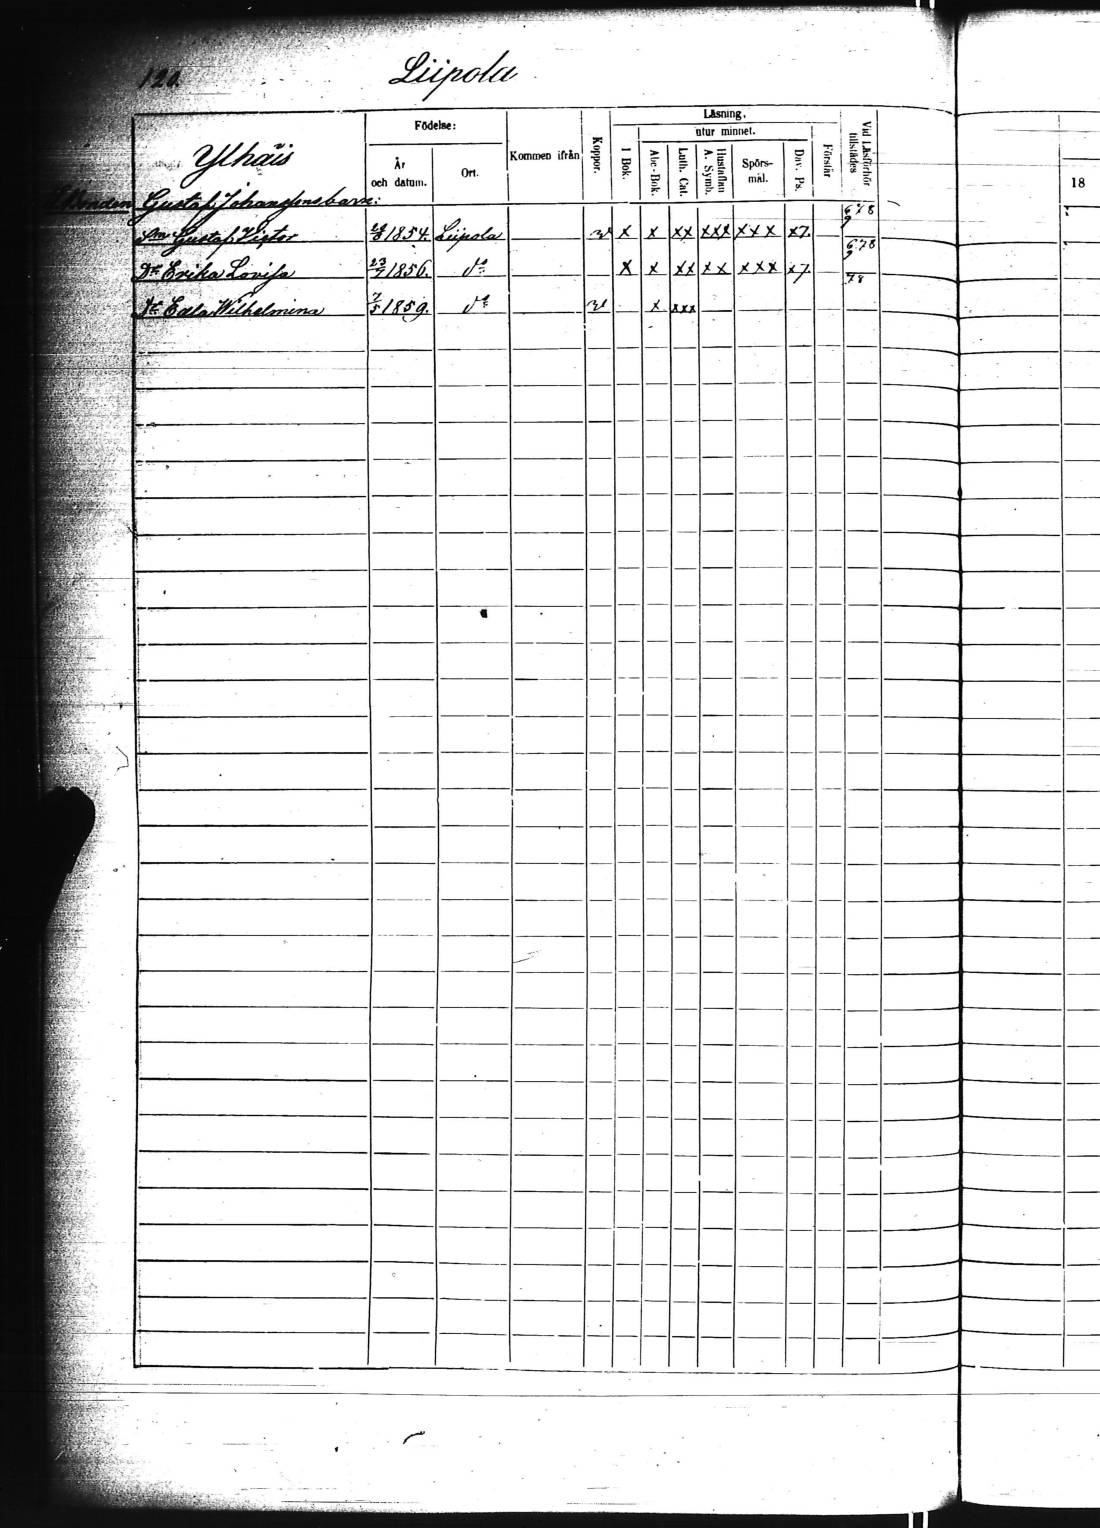 120.
Liipola
Ylhäis
Födelse:
År och datum.
Ort.
Kommen ifrån
Koppor.
Läsning.
utur minnet.
I Bok.
Abc-Bok.
Luth. Cat.
Hustaflan A. Symb.
Spörsmål.
Dav. Ps.
Förstår
Vid Läsförhör tillstädes
18
Bonden Gustaf Johanssons barn:
Sn Gustaf Victor 1854. Liipola x x xx xxx xxx x7. 6 7 8 9
Dr Erika Lovisa 23/7 1856. do x x xx xx xxx x7. 6 7 8 9
Dr Edla Wilhelmina 7/5 1859. do x xxx 7 8